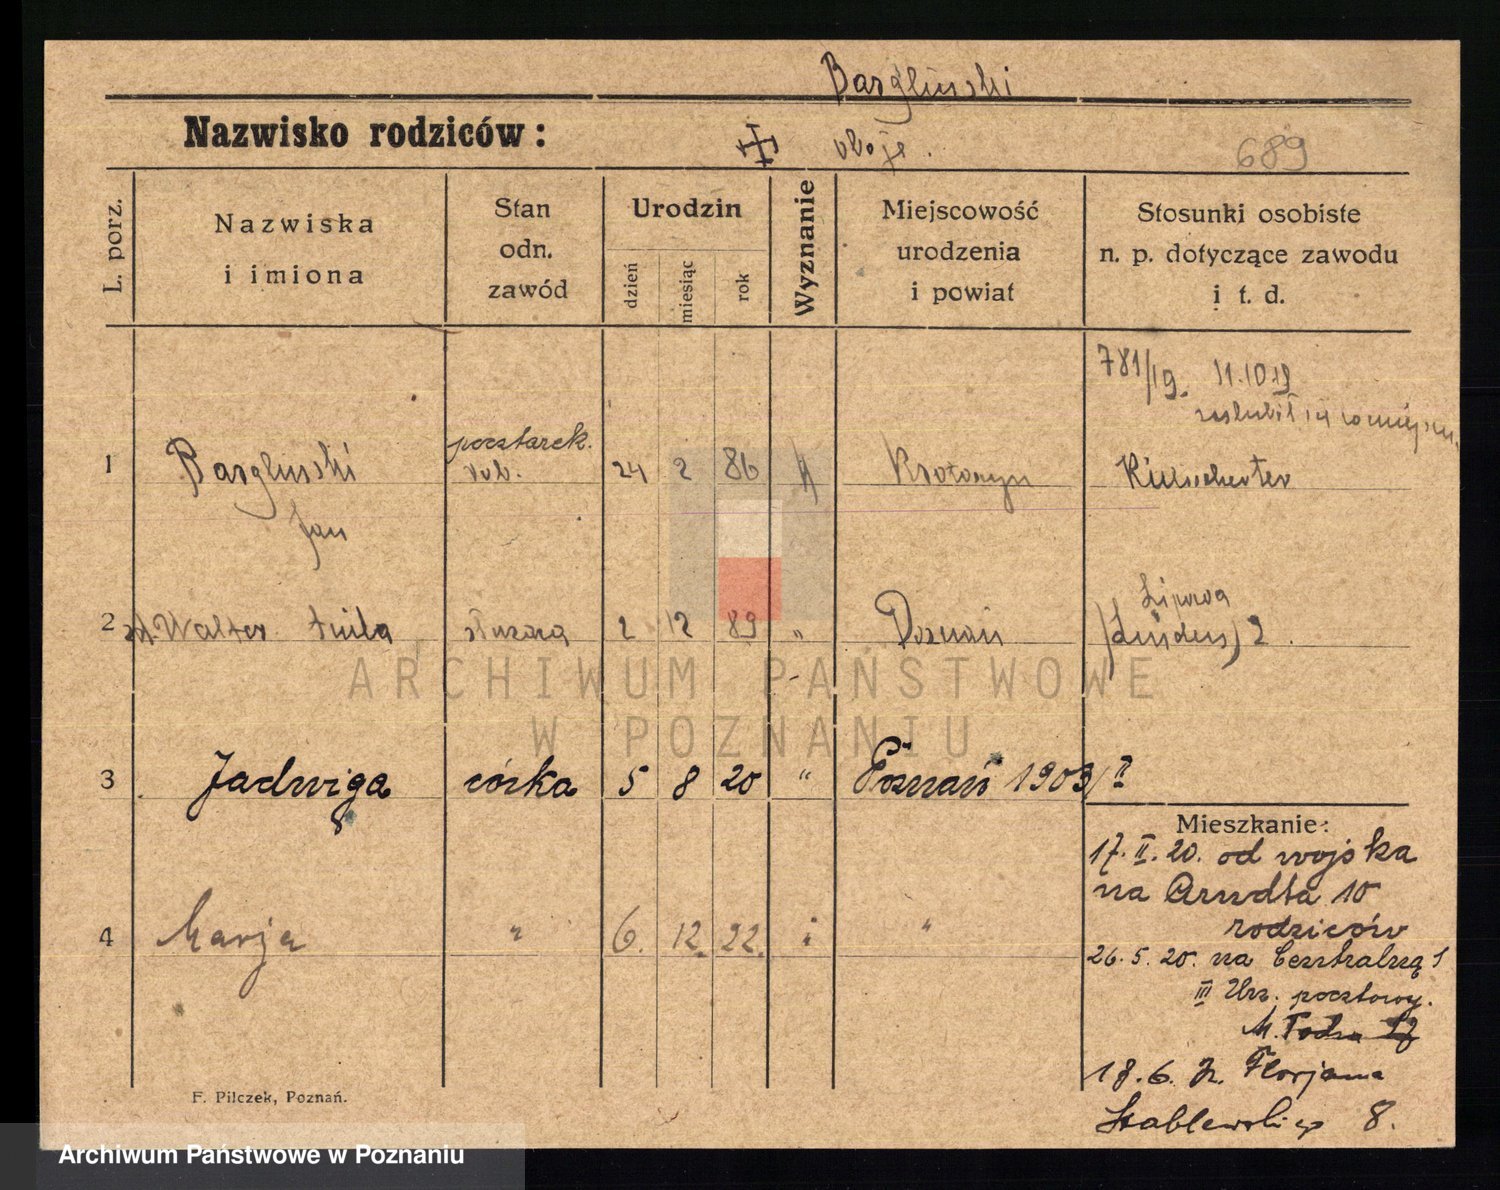 Bargluński
Nazwisko rodziców:
oboje.
689
L. porz.
Nazwiska
i imiona
Stan
odn.
zawód
Urodzin
dzień
miesiąc
rok
Wyznanie
Miejscowość
urodzenia
i powiat
Stosunki osobiste
n. p. dotyczące zawodu
i t. d.
781/19. 11.10 19
zaślubił się
pocztarek.
1 Bargluński rob. 24 2 86 Krotoszyn
Jan
Lipowa
2 Walter służąca 2 12 89 " Poznań (Linden) 2.
3 Jadwiga córka 5 8 20 " Poznań 1903/
Mieszkanie:
17. II. 20. od wojska
na Arndta 10
rodziców
4 Marja " 6. 12. 22. "
26. 5. 20. na Centralną 1
III Urz. pocztowy.
18. 6. Florjana
Stablewskiego 8.
F. Pilczek, Poznań.
ARCHIWUM PAŃSTWOWE
W POZNANIU
Archiwum Państwowe w Poznaniu